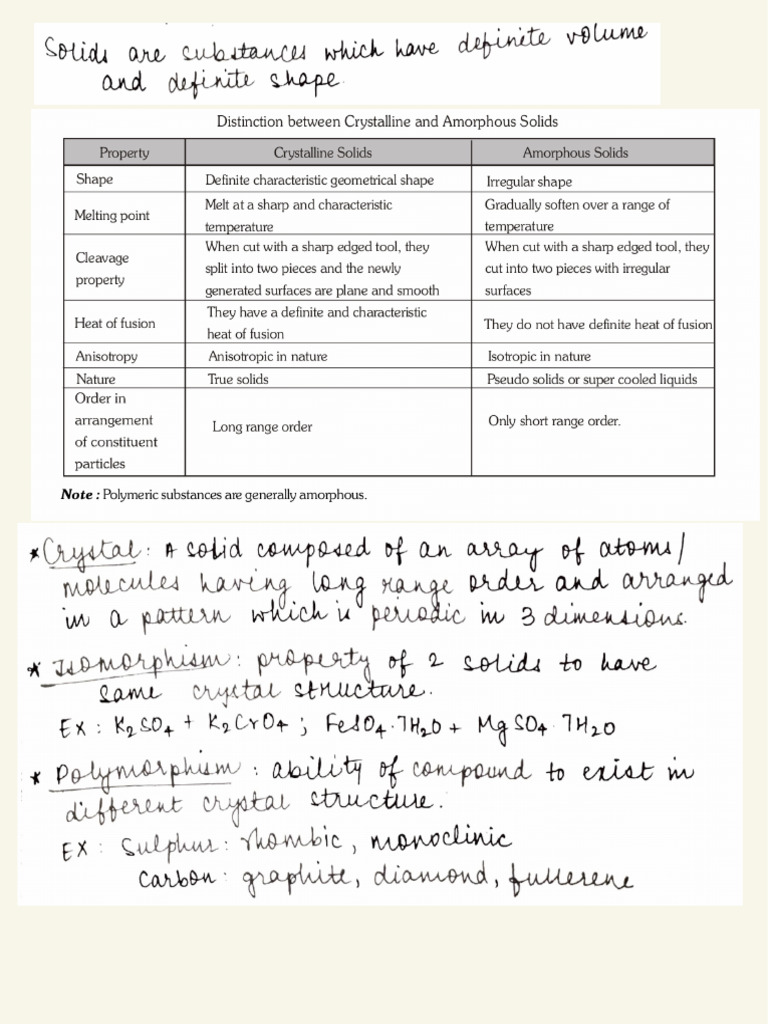 Solids are substances which have definite volume
and definite shape.
Distinction between Crystalline and Amorphous Solids
Property Crystalline Solids Amorphous Solids
Shape Definite characteristic geometrical shape Irregular shape
Melting point Melt at a sharp and characteristic Gradually soften over a range of
temperature temperature
Cleavage When cut with a sharp edged tool, they When cut with a sharp edged tool, they
property split into two pieces and the newly cut into two pieces with irregular
generated surfaces are plane and smooth surfaces
Heat of fusion They have a definite and characteristic They do not have definite heat of fusion
heat of fusion
Anisotropy Anisotropic in nature Isotropic in nature
Nature True solids Pseudo solids or super cooled liquids
Order in
arrangement Long range order Only short range order.
of constituent
particles
Note : Polymeric substances are generally amorphous.
* Crystal : A solid composed of an array of atoms/
molecules having long range order and arranged
in a pattern which is periodic in 3 dimensions.
* Isomorphism : property of 2 solids to have
same crystal structure.
EX : K2SO4 + K2CrO4 ; FeSO4.7H2O + MgSO4.7H2O
* Polymorphism : ability of compound to exist in
different crystal structure.
EX : Sulphur : rhombic, monoclinic
Carbon : graphite, diamond, fullerene